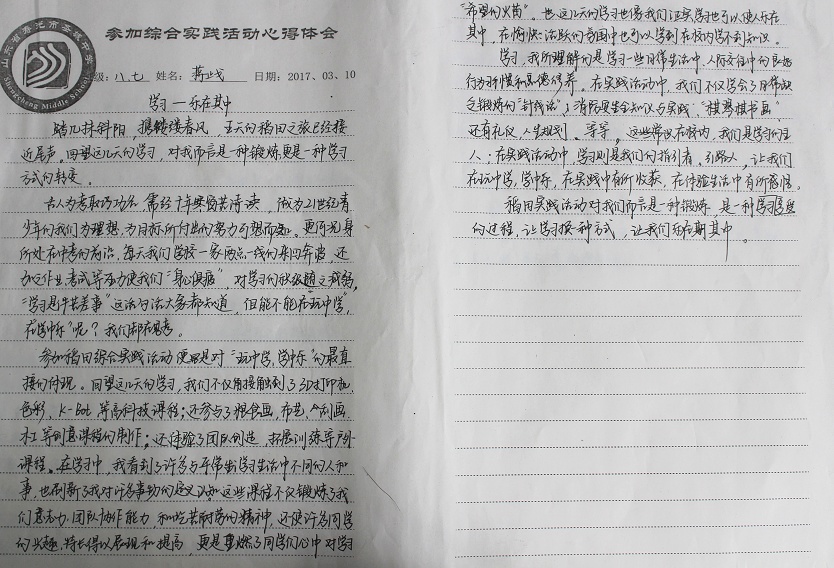 山东省寿光市圣城中学
Shengcheng Middle School
参加综合实践活动心得体会
级：八、七 姓名：蒋 日期：2017、03、10
学习—乐在其中
踏几抹斜阳 携一缕春风，五天的稻田之旅已经接
近尾声。回望这几天的学习，对我而言是一种锻炼更是一种学习
方式的转变。
古人为考取功名 需经十年寒窗苦读，成为21世纪青
少年的我们为理想，为目标所付出的努力可想而知。更何况身
所处在中考的省份，每天我们学校—家两点一线的来回奔波，还
加之作业、考试等压力使我们“身心俱疲”，对学习的积
“学习是件苦差事”这话句话大家都知道，但能不能“在玩中学，
在学中乐”呢？我们都在思考。
参加稻田综合实践活动便是对“玩中学，学中乐”的最直
接的体现。回望这几天的学习，我们不仅接触到了3D打印机、
色彩、K-Bot 等高科技课程；还参与了粮食画，布艺，刮画，
木工等创意课程的制作；还体验了团队创造，拓展训练等户外
课程。在学习中，我看到了许多与平常出学习生活中不同的人和
事，也刷新了我对许多事物的定义认知这些课程不仅锻炼了我
们意志力，团队协作能力，和吃苦耐劳的精神，还使许多同学
的兴趣，特长得以展现和提高，更是重燃了同学们心中对学
“希望的火苗”。也这几天的学习也像我们证实学习也可以使人乐在
其中，在愉快活跃的氛围中也可以学到在校内学不到知识。
学习，我所理解的是学习一些日常生活中，人际交往中的良好
行为习惯和思德修养。在实践活动中，我们不仅学会了日常缺
乏锻炼的“针线活”，消防安全知识与实践，“棋琴棋书画”
还有礼仪，人生规划，等等。这些常识在校内，我们是学习的主
人；在实践活动中，学习则是我们的指引者，引路人，让我们
在玩中学，学中乐，在实践中有所收获，在体验生活中有所感悟。
稻田实践活动对我们而言是一种锻炼，是一种学习
的过程，让学习换一种方式，让我们乐在期其中。